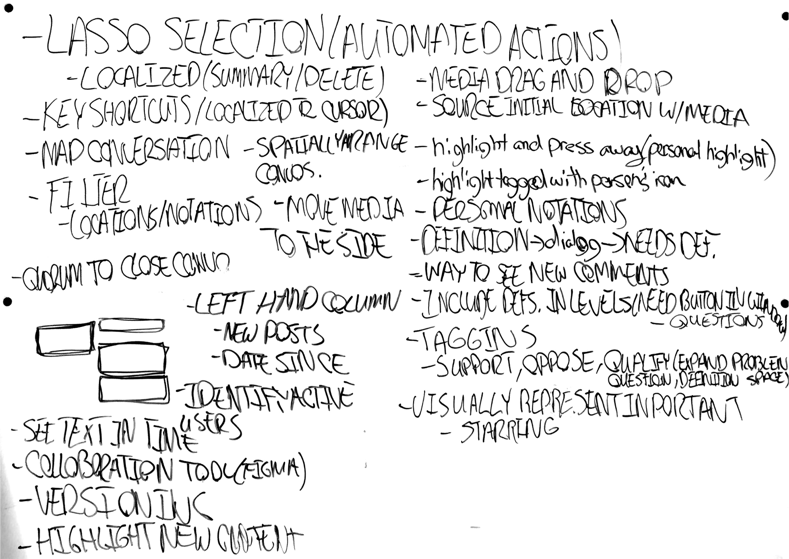 - LASSO SELECTION (AUTOMATED ACTIONS)
- LOCALIZED (SUMMARY/DELETE)
- KEY SHORTCUTS/LOCALIZED TO CURSOR)
- MAP CONVERSATION
- SPATIALLY ARRANGE
CONVOS.
- FILTER
- LOCATIONS/NOTATIONS
- MOVE MEDIA
TO THE SIDE
- QUORUM TO CLOSE CONVO?
- LEFT HAND COLUMN
- NEW POSTS
- DATE SINCE
- IDENTIFY ACTIVE
USERS
- SEE TEXT IN TIME
- COLLOBORATION TOOL (FIGMA)
- VERSIONING
- HIGHLIGHT NEW CONTENT
- MEDIA DRAG AND DROP
- SOURCE INITIAL LOCATION W/MEDIA
- highlight and press away/personal highlight)
- highlight tagged with person's icon
- PERSONAL NOTATIONS
- DEFINITION → dialog → NEEDS DEF.
- WAY TO SEE NEW COMMENTS
- INCLUDE DEFS. IN LEVELS/NEED BUTTON IN WINDOW)
- QUESTIONS
- TAGGINS
- SUPPORT, OPPOSE, QUALIFY (EXPAND PROBLEM
QUESTION, DEFINITION SPACE)
- VISUALLY REPRESENT IMPORTANT
- STARRING